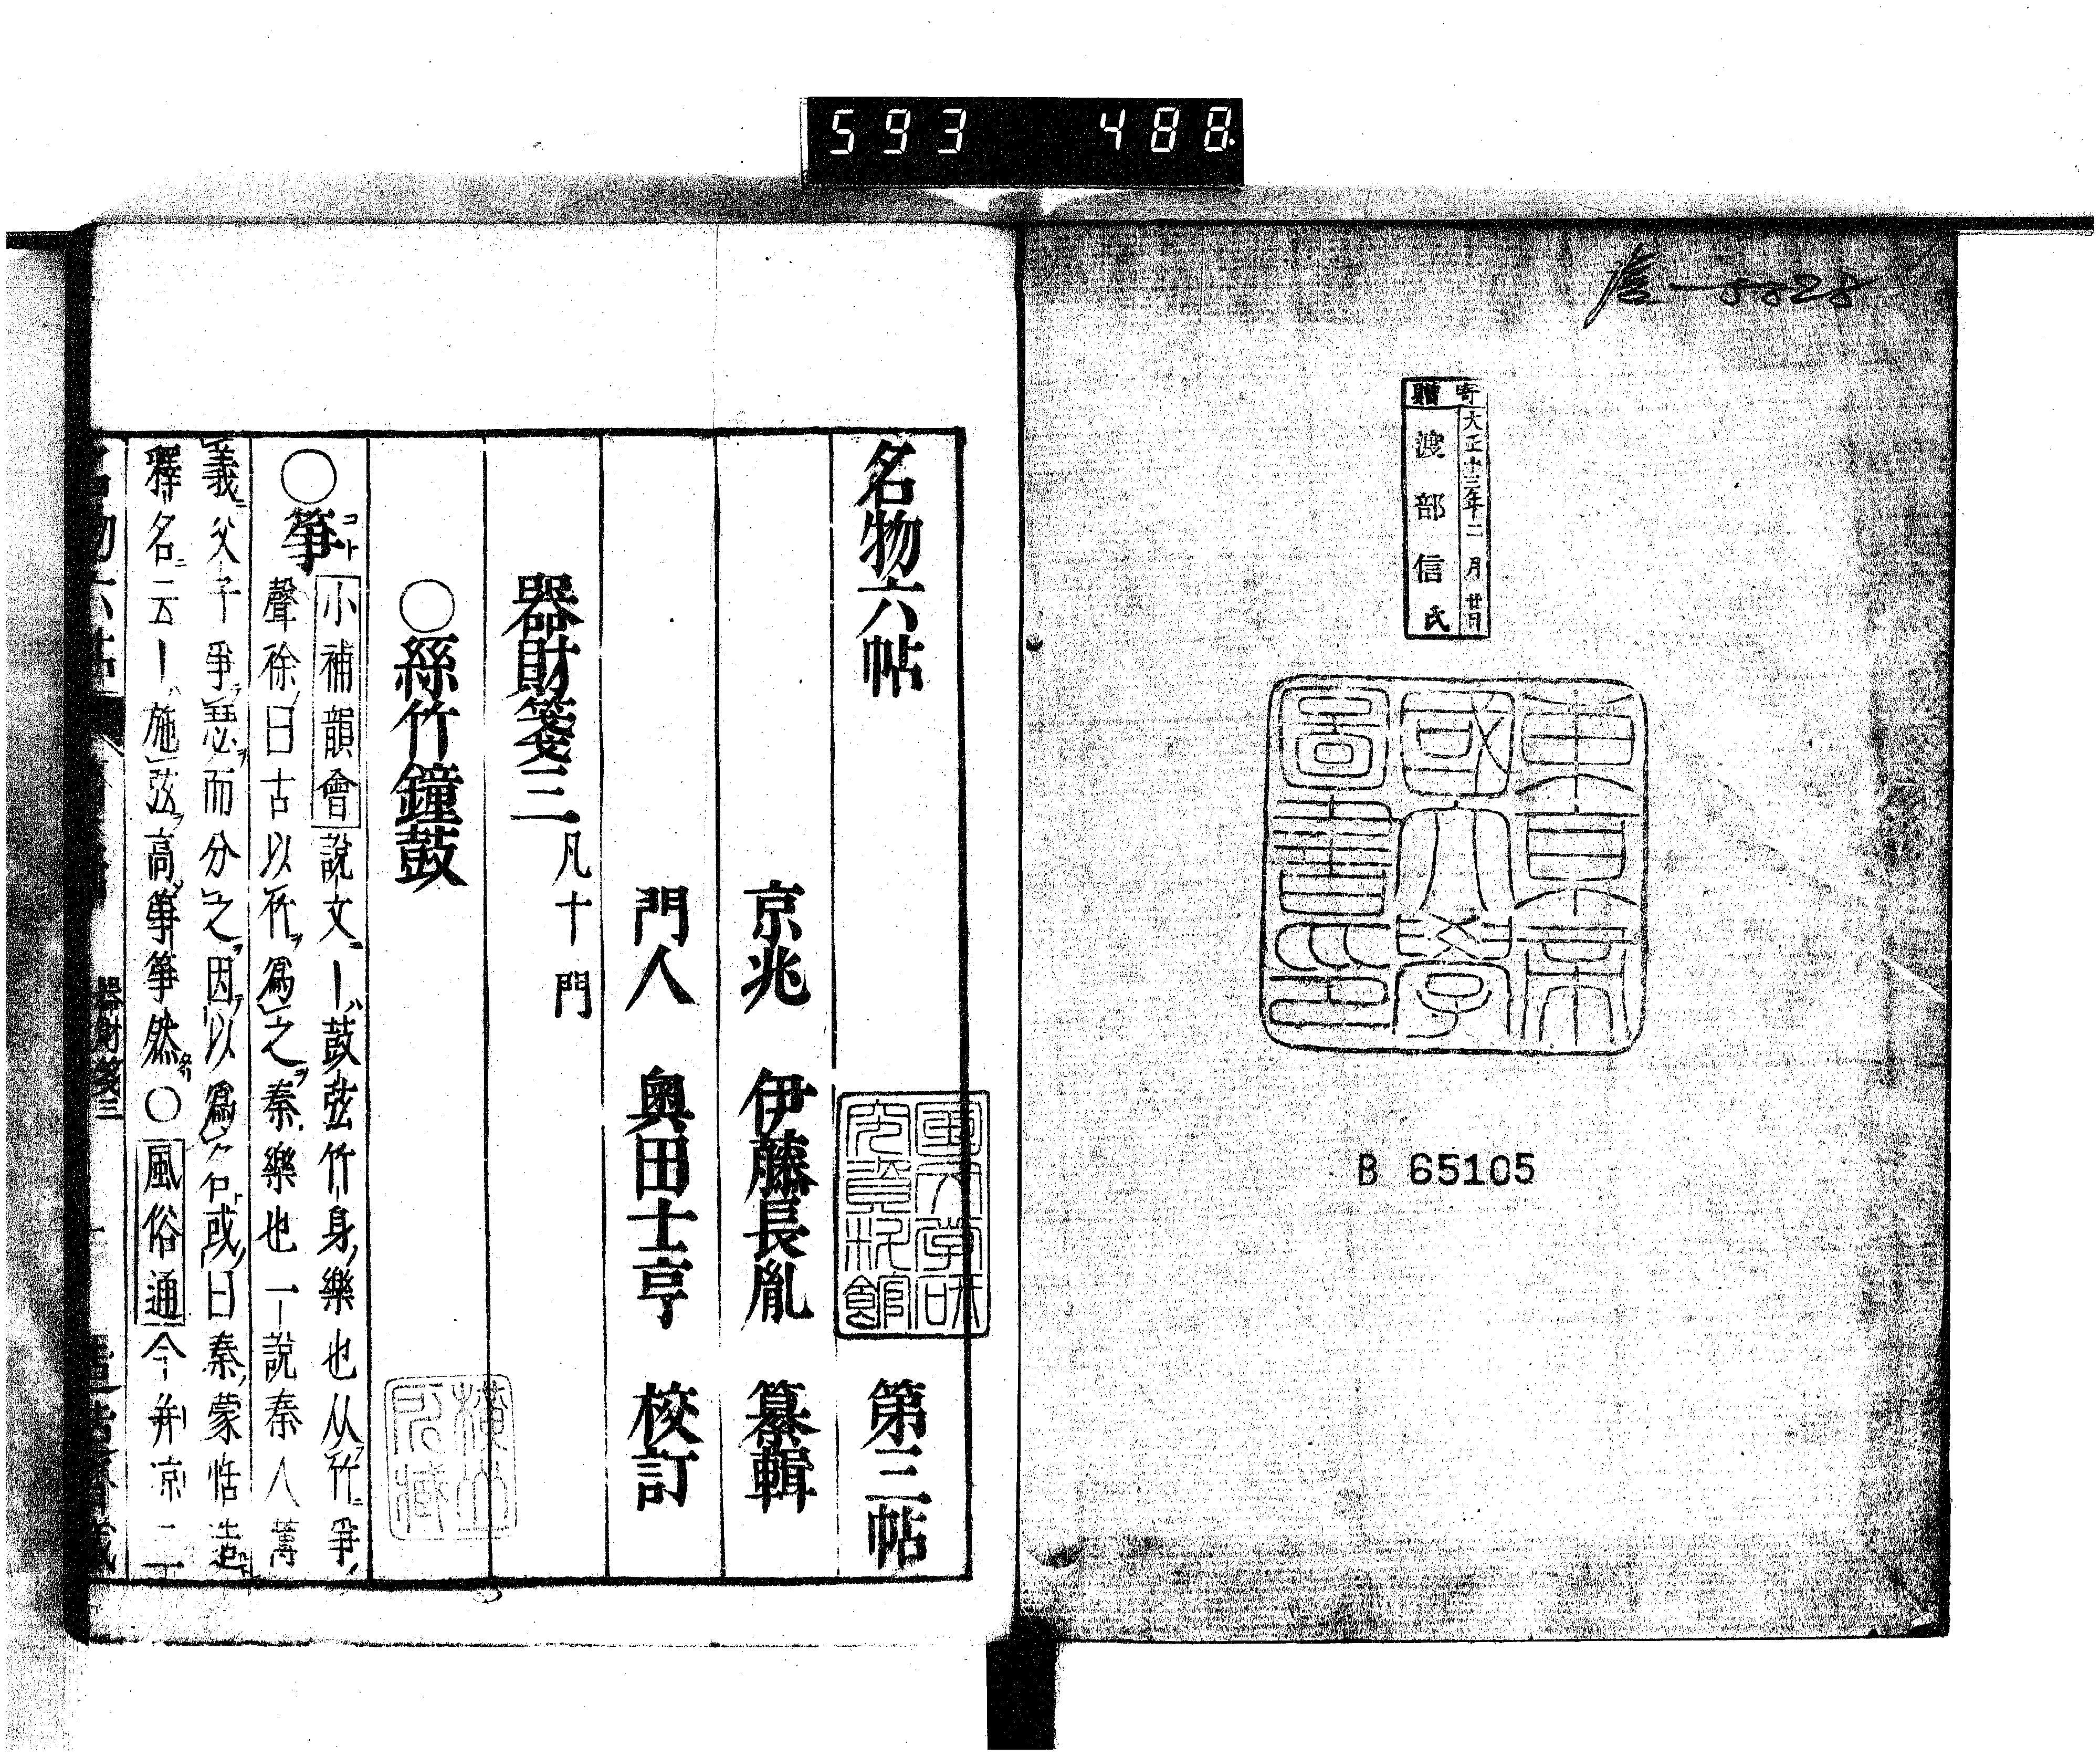 593 488
寄贈
大正十三年二月廿日
渡部信氏
東京帝
國大學
圖書印
B 65105
名物六帖 第三帖
京兆 伊藤長胤 纂輯
門人 奧田士亨 校訂
器財箋三 凡十門
○絲竹鐘鼓
○箏 コト 小補韻會 說文ニ―ハ鼓弦竹身樂也从竹ニ爭ノ
聲徐曰古以竹ヲ爲之ヲ秦樂也一說秦人薄
義ニ父子爭瑟ヲ而分之ヲ因以爲名或曰秦蒙恬造
釋名ニ云―ハ施弦ヲ高箏箏然○風俗通今并京二
器財箋三
國文学研
究資料館